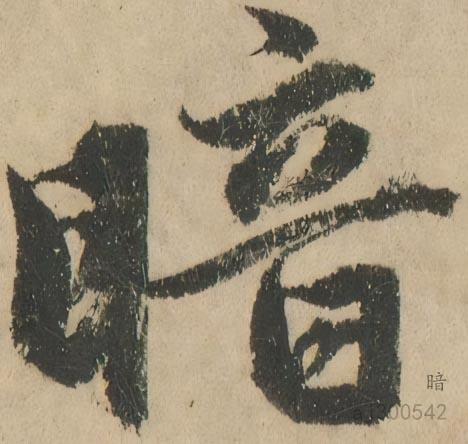 暗
暗
a1300542